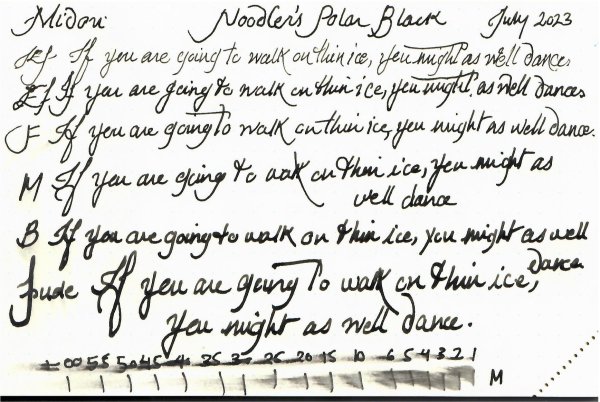 Midori Noodler's Polar Black July 2023
EF If you are going to walk on thin ice, you might as well dance.
EF If you are going to walk on thin ice, you might as well dance
F If you are going to walk on thin ice, you might as well dance.
M If you are going to walk on thin ice, you might as
well dance
B If you are going to walk on thin ice, you might as well
dance
fude If you are going to walk on thin ice,
you might as well dance.
55 50 45 4 35 3 25 20 15 10 6 5 4 3 2 1
M